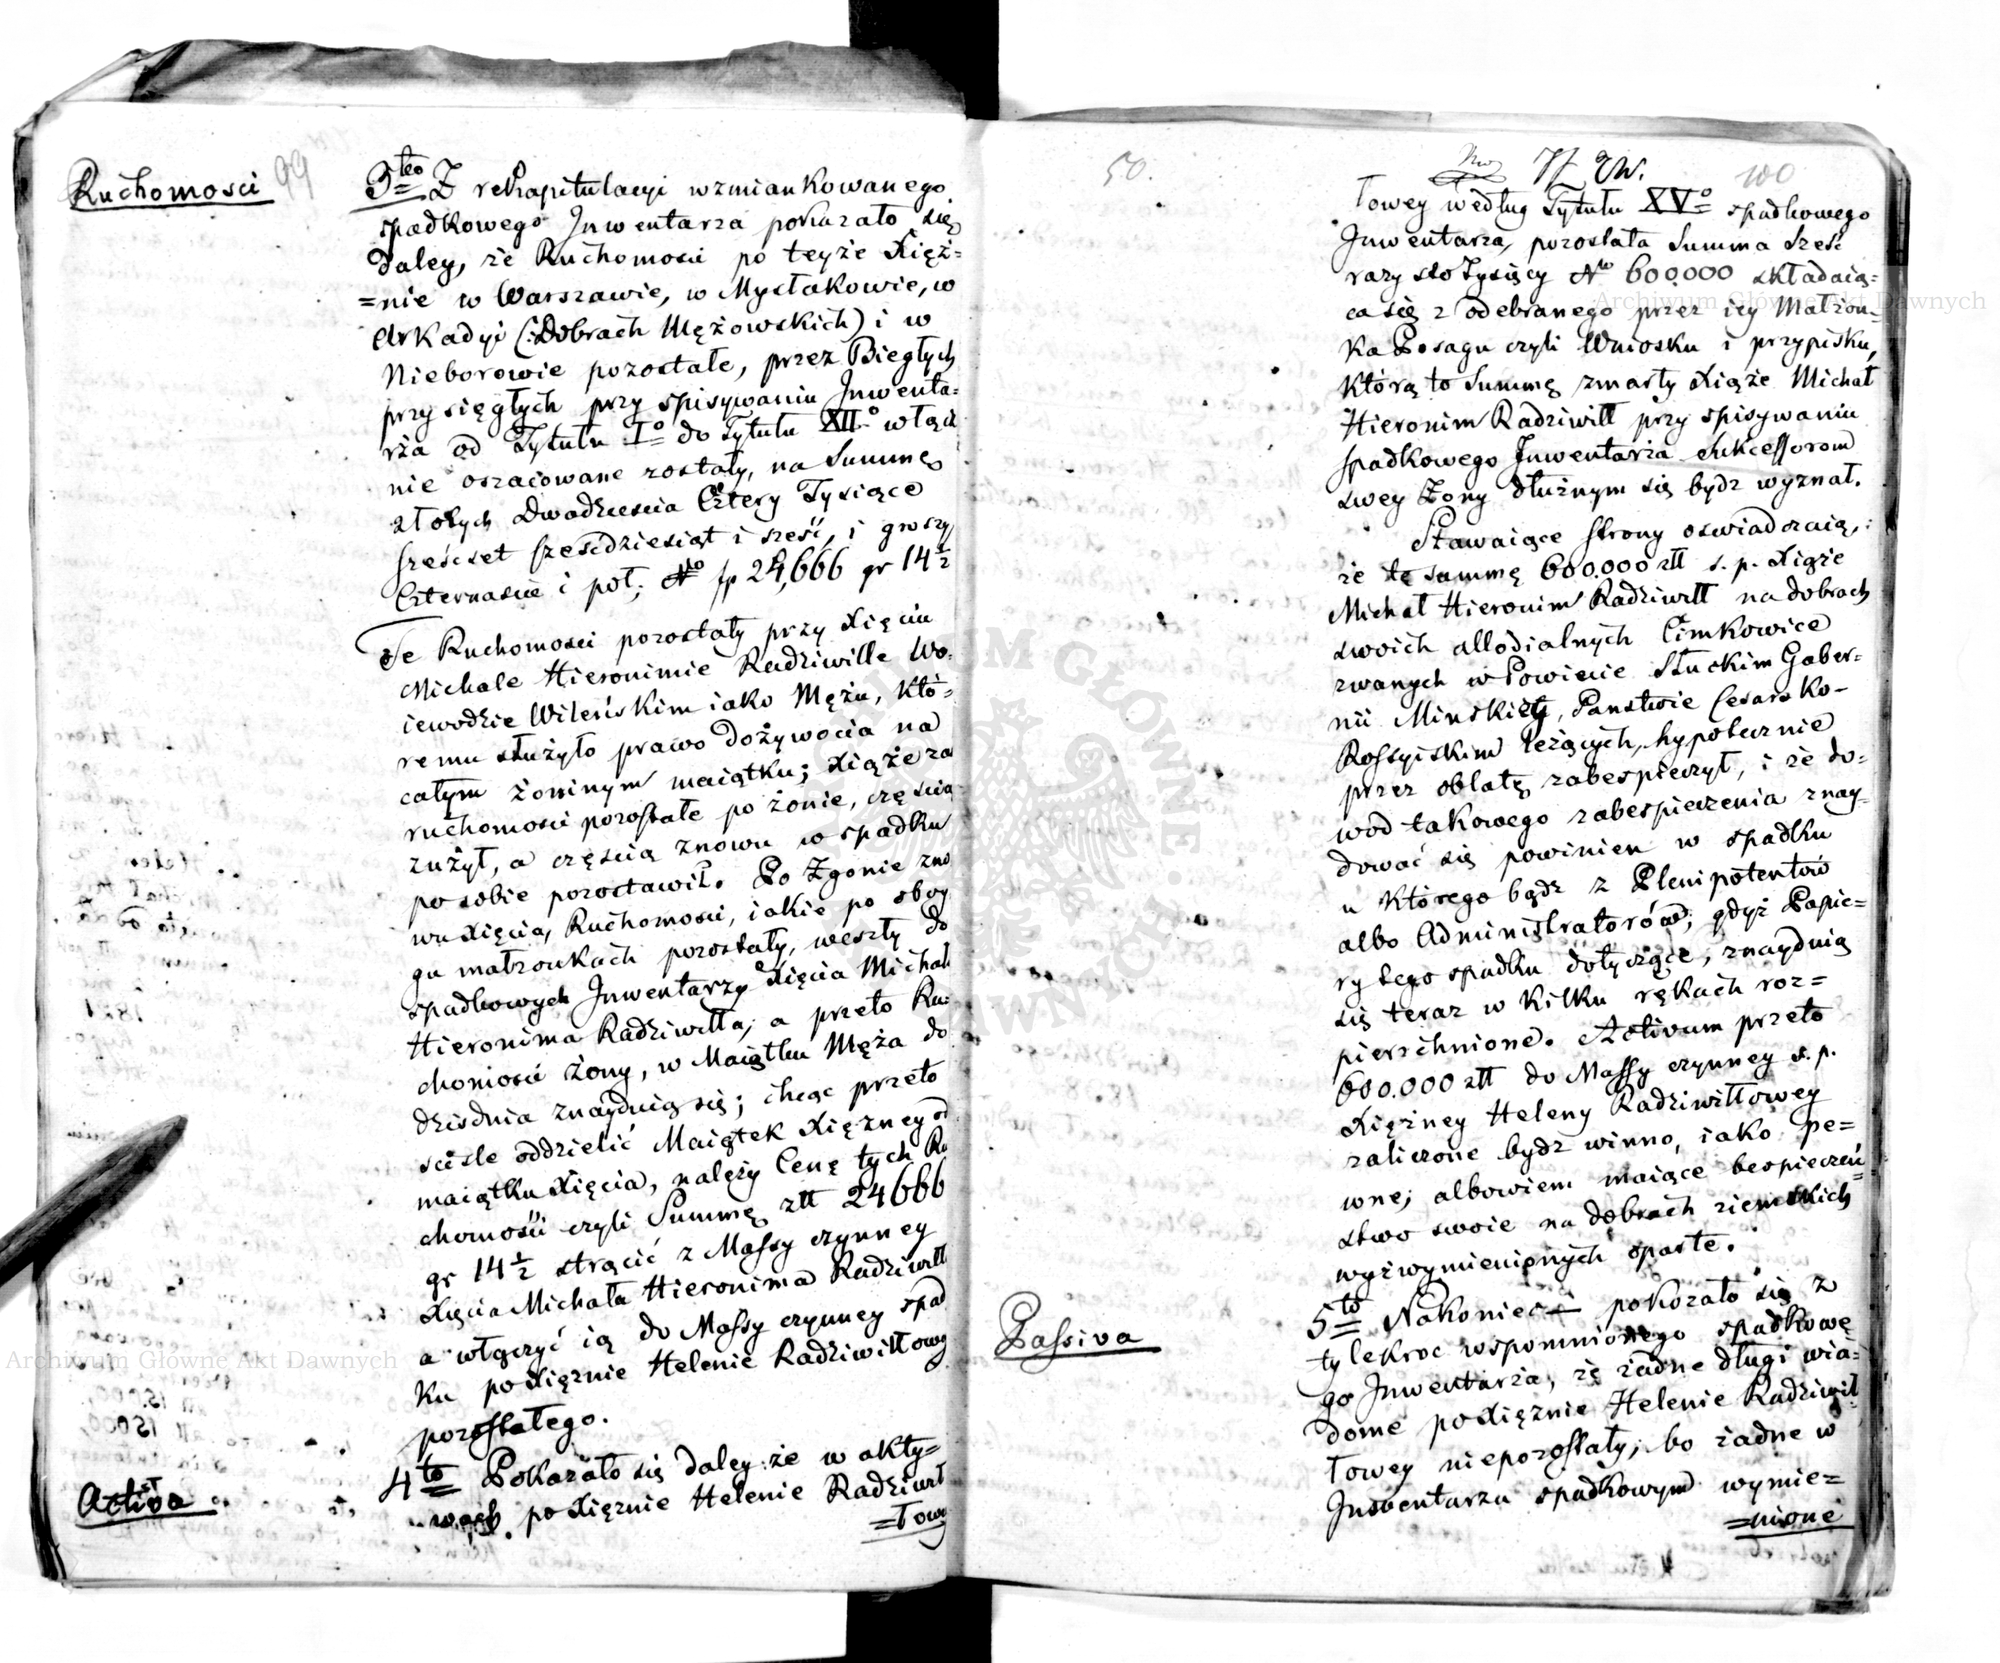 Ruchomosci 99
3tio Z rekapitulacyi wzmiankowanego
spadkowego Inwentarza pokazało się
daley, że Ruchomosci po teyże Xięż=
=nie w Warszawie, w Mysłakowie, w
Arkadyi (:Dobrach Mężowskich) i w
Nieborowie pozostałe, przez Biegłych
przysięgłych przy spisywaniu Inwenta=
rza od Tytułu Io do Tytułu XIIo włącz
nie oszacowane zostały, na Summę
złotych Dwadziescia Cztery Tysiące
sześćset sześćdziesiąt i sześć, i groszy
Czternascie i poł; No fp 24,666 gr 14½
Te Ruchomosci pozostały przy Xięciu
Michale Hieronimie Radziwille Wo-
iewodzie Wileńskim iako Mężu, któ=
remu służyło prawo dożywocia na
całym żoninym maiątku; Xiąże za
ruchomosci pozostałe po żonie, częscią
zużył, a częscią znowu w spadku
po sobie pozostawił. Po Zgonie zno
wu Xięcia, Ruchomosci, iakie po oboy
gu małzonkach pozostały, weszły do
spadkowych Inwentarzy Xięcia Michała
Hieronima Radziwiłła, a przeto Ru=
chomosci żony, w Maiątku Męża do
dzisdnia znayduią się; chcąc przeto
scisle oddzielić Maiątek Xiężney od
maiątku Xięcia, należy Cenę tych Ru
chomości czyli Summę złł 24666
gr 14½ strącić z Massy czynney
Xięcia Michała Hieronima Radziwiłł
a włączyć ią do Massy czynney spad
ku po Xiężnie Helenie Radziwiłłowy
pozostałego.
Activa
4to Pokazało się daley że w akty=
wach po Xiężnie Helenie Radziwił
=łowy
50. 100
łowey według Tytułu XVo spadkowego
Inwentarza, pozostała Summa Sześć
razy sto Tysięcy No 600.000 składaią=
ca się z odebranego przez iey Małżon=
ka Posagu czyli Wniosku i przypisku,
którą to Summę zmarły Xiąże Michał
Hieronim Radziwiłł przy spisywaniu
spadkowego Inwentarza Sukcessorom
swey Zony dłużnym się bydz wyznał.
Stawaiące Strony oswiadczaią,
że tę summę 600.000 złł s. p. Xiąże
Michał Hieronim Radziwiłł na dobrach
swoich allodialnych Cimkowice
zwanych w Powiecie Słuckim Guber=
nii Minskiey, Panstwie Cesarsko-
Rossyiskim leżących, hypotecznie
przez oblatę zabespieczył, i że do=
wod takowego zabespieczenia znay=
dować się powinien w spadku
u którego bądz z Plenipotentów
albo Administratorów, gdyż Papie=
ry tego spadku dotyczące, znayduią
się teraz w kilku rękach roz=
pierzchnione. Activum przeto
600.000 złł do Massy czynney s. p.
Xiężney Heleny Radziwiłłowey
zaliczone bydz winno, iako pe=
wne; albowiem maiące bespieczeń=
stwo swoie na dobrach ziemskich
wyżwymienionych oparte.
Passiva
5to Nakoniec pokazało się z
tylekroc wspomnionego spadkowe
go Inwentarza, że żadne długi wia=
dome po Xiężnie Helenie Radziwił
łowey niepozostały; bo żadne w
Inwentarzu spadkowym wymie=
=nione
Archiwum Główne Akt Dawnych
Archiwum Główne Akt Dawnych
ARCHIWUM GŁÓWNE AKT DAWNYCH